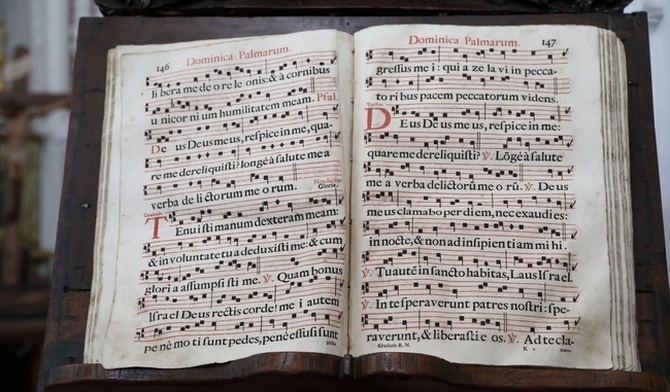 146
Dominica Palmarum.
li bera me de o re le onis: & à cornibus
u nicor ni um humilitatem meam. Psal.
De us Deus meus, respice in me, qua-
re me dereliquisti? longè à salute mea
verba de li ctorum me o rum. Gloria.
Graduale
Tenui sti manum dexteram meam:
& in voluntate tu a deduxisti me: & cum
glori a assumpsi sti me. ℣. Quam bonus
Israel Deus rectis corde! me i autem
pe nè mo ti sunt pedes, penè effusi sunt
Dominica Palmarum. 147
gressus me i: qui a ze la vi in pecca-
tori bus pacem peccatorum videns.
Tractus
DEus Deus me us, respice in me:
quare me dereliquisti? ℣. Lõgè à salute
me a verba delictorũ me o rũ. ℣. De us
me us clamabo per diem, nec exaudi es:
in nocte, & non ad insipien ti am mi hi.
℣. Tu autẽ in sancto habitas, Laus Israel.
℣. In te speraverunt patres nostri: spe-
raverunt, & liberasti e os. ℣. Ad te cla-
Graduale R. N.